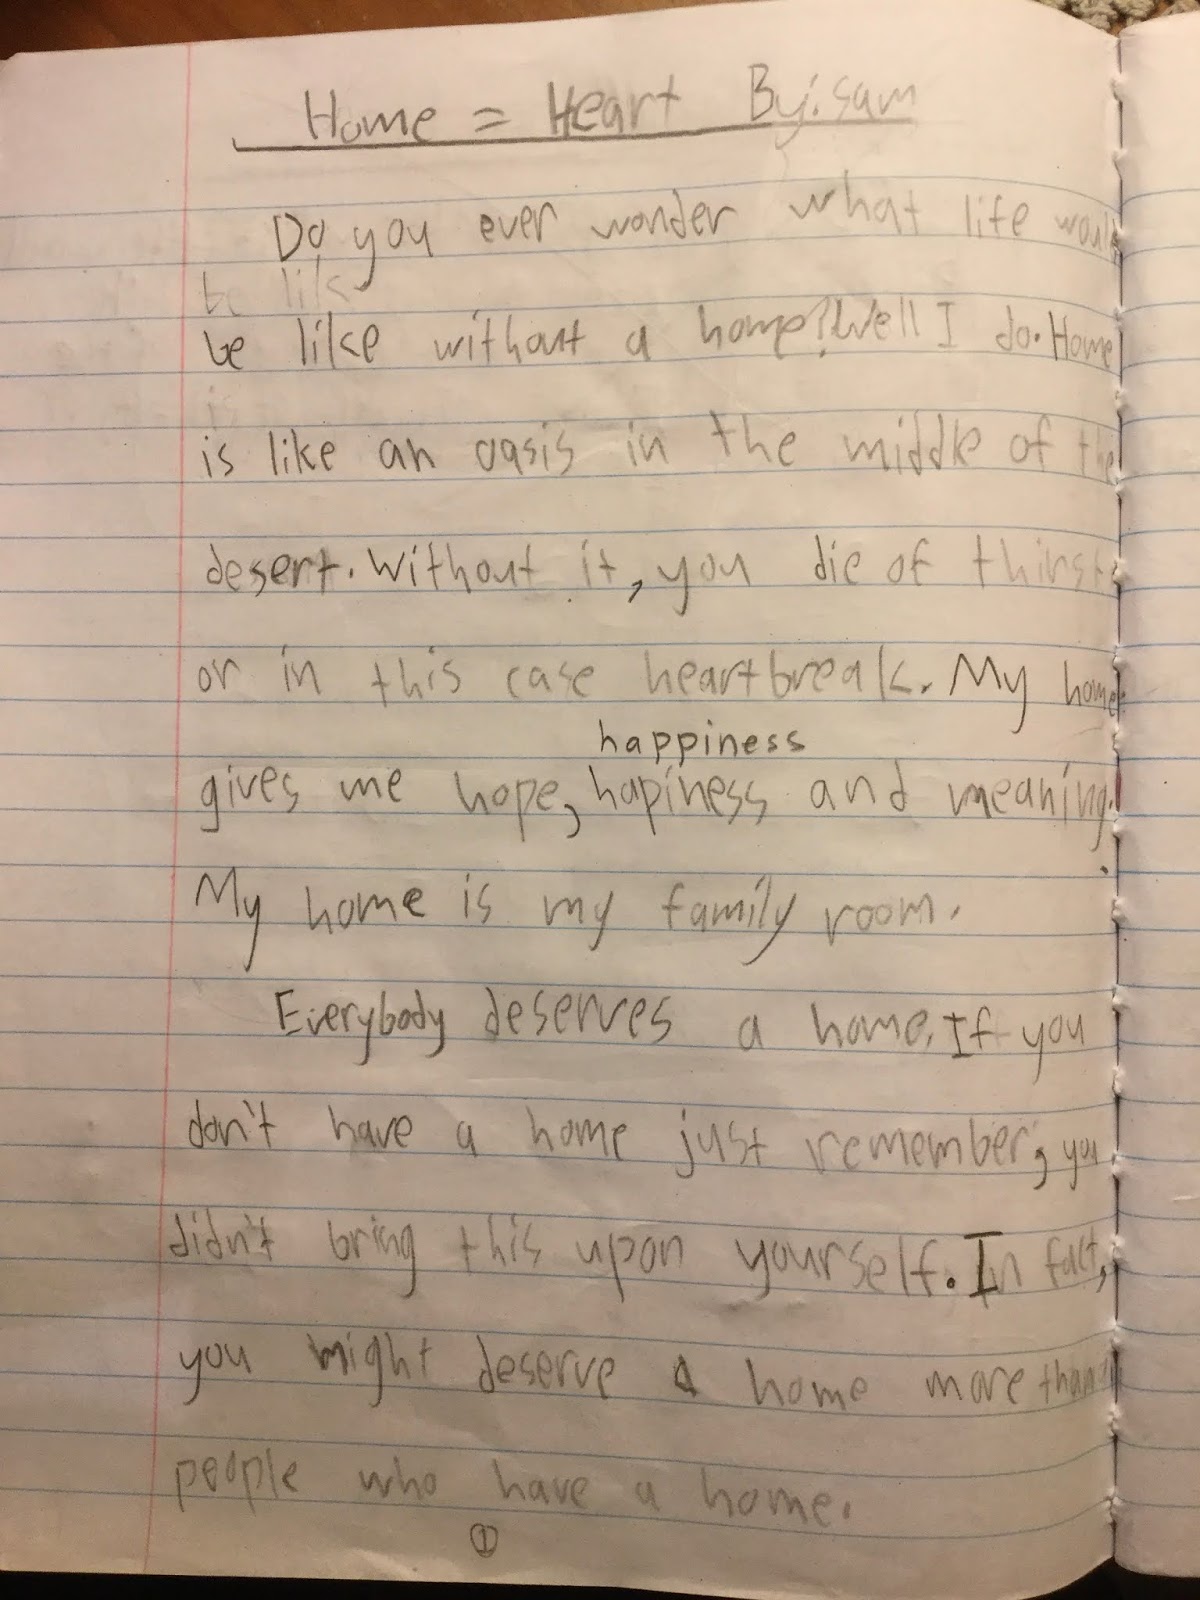 Home = Heart By: sam
Do you ever wonder what life would
be lik
be like without a home? Well I do. Home
is like an oasis in the middle of the
desert. Without it, you die of thirst,
or in this case heartbreak. My home
happiness
gives me hope, hapiness and meaning.
My home is my family room.
Everybody deserves a home. If you
don't have a home just remember, you
didn't bring this upon yourself. In fact,
you might deserve a home more than
people who have a home.
1